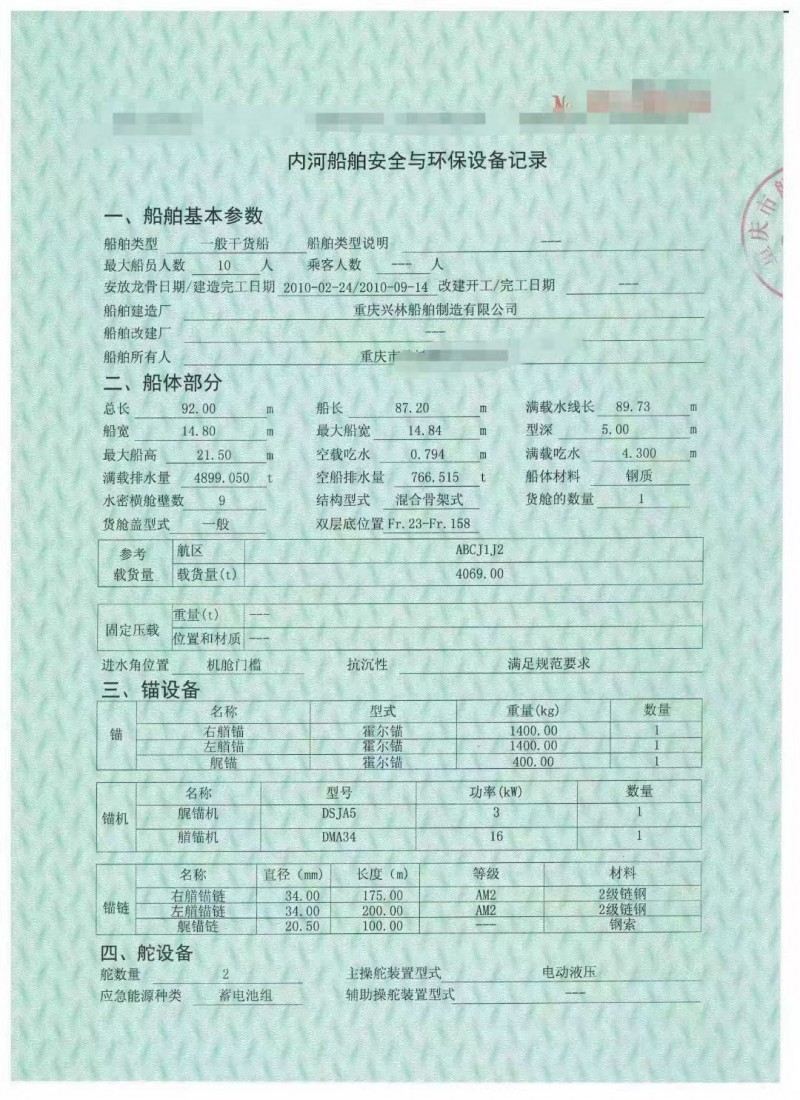 No
内河船舶安全与环保设备记录
一、船舶基本参数
船舶类型 一般干货船 船舶类型说明 ---
最大船员人数 10 人 乘客人数 --- 人
安放龙骨日期/建造完工日期 2010-02-24/2010-09-14 改建开工/完工日期 ---
船舶建造厂 重庆兴林船舶制造有限公司
船舶改建厂 ---
船舶所有人 重庆市
二、船体部分
总长 92.00 m 船长 87.20 m 满载水线长 89.73 m
船宽 14.80 m 最大船宽 14.84 m 型深 5.00 m
最大船高 21.50 m 空载吃水 0.794 m 满载吃水 4.300 m
满载排水量 4899.050 t 空船排水量 766.515 t 船体材料 钢质
水密横舱壁数 9 结构型式 混合骨架式 货舱的数量 1
货舱盖型式 一般 双层底位置 Fr.23-Fr.158
参考载货量 航区 ABCJ1J2
载货量(t) 4069.00
固定压载 重量(t) ---
位置和材质 ---
进水角位置 机舱门槛 抗沉性 满足规范要求
三、锚设备
锚 名称 型式 重量(kg) 数量
右艏锚 霍尔锚 1400.00 1
左艏锚 霍尔锚 1400.00 1
艉锚 霍尔锚 400.00 1
锚机 名称 型号 功率(kW) 数量
艉锚机 DSJA5 3 1
艏锚机 DMA34 16 1
锚链 名称 直径(mm) 长度(m) 等级 材料
右艏锚链 34.00 175.00 AM2 2级链钢
左艏锚链 34.00 200.00 AM2 2级链钢
艉锚链 20.50 100.00 --- 钢索
四、舵设备
舵数量 2 主操舵装置型式 电动液压
应急能源种类 蓄电池组 辅助操舵装置型式 ---
重庆市